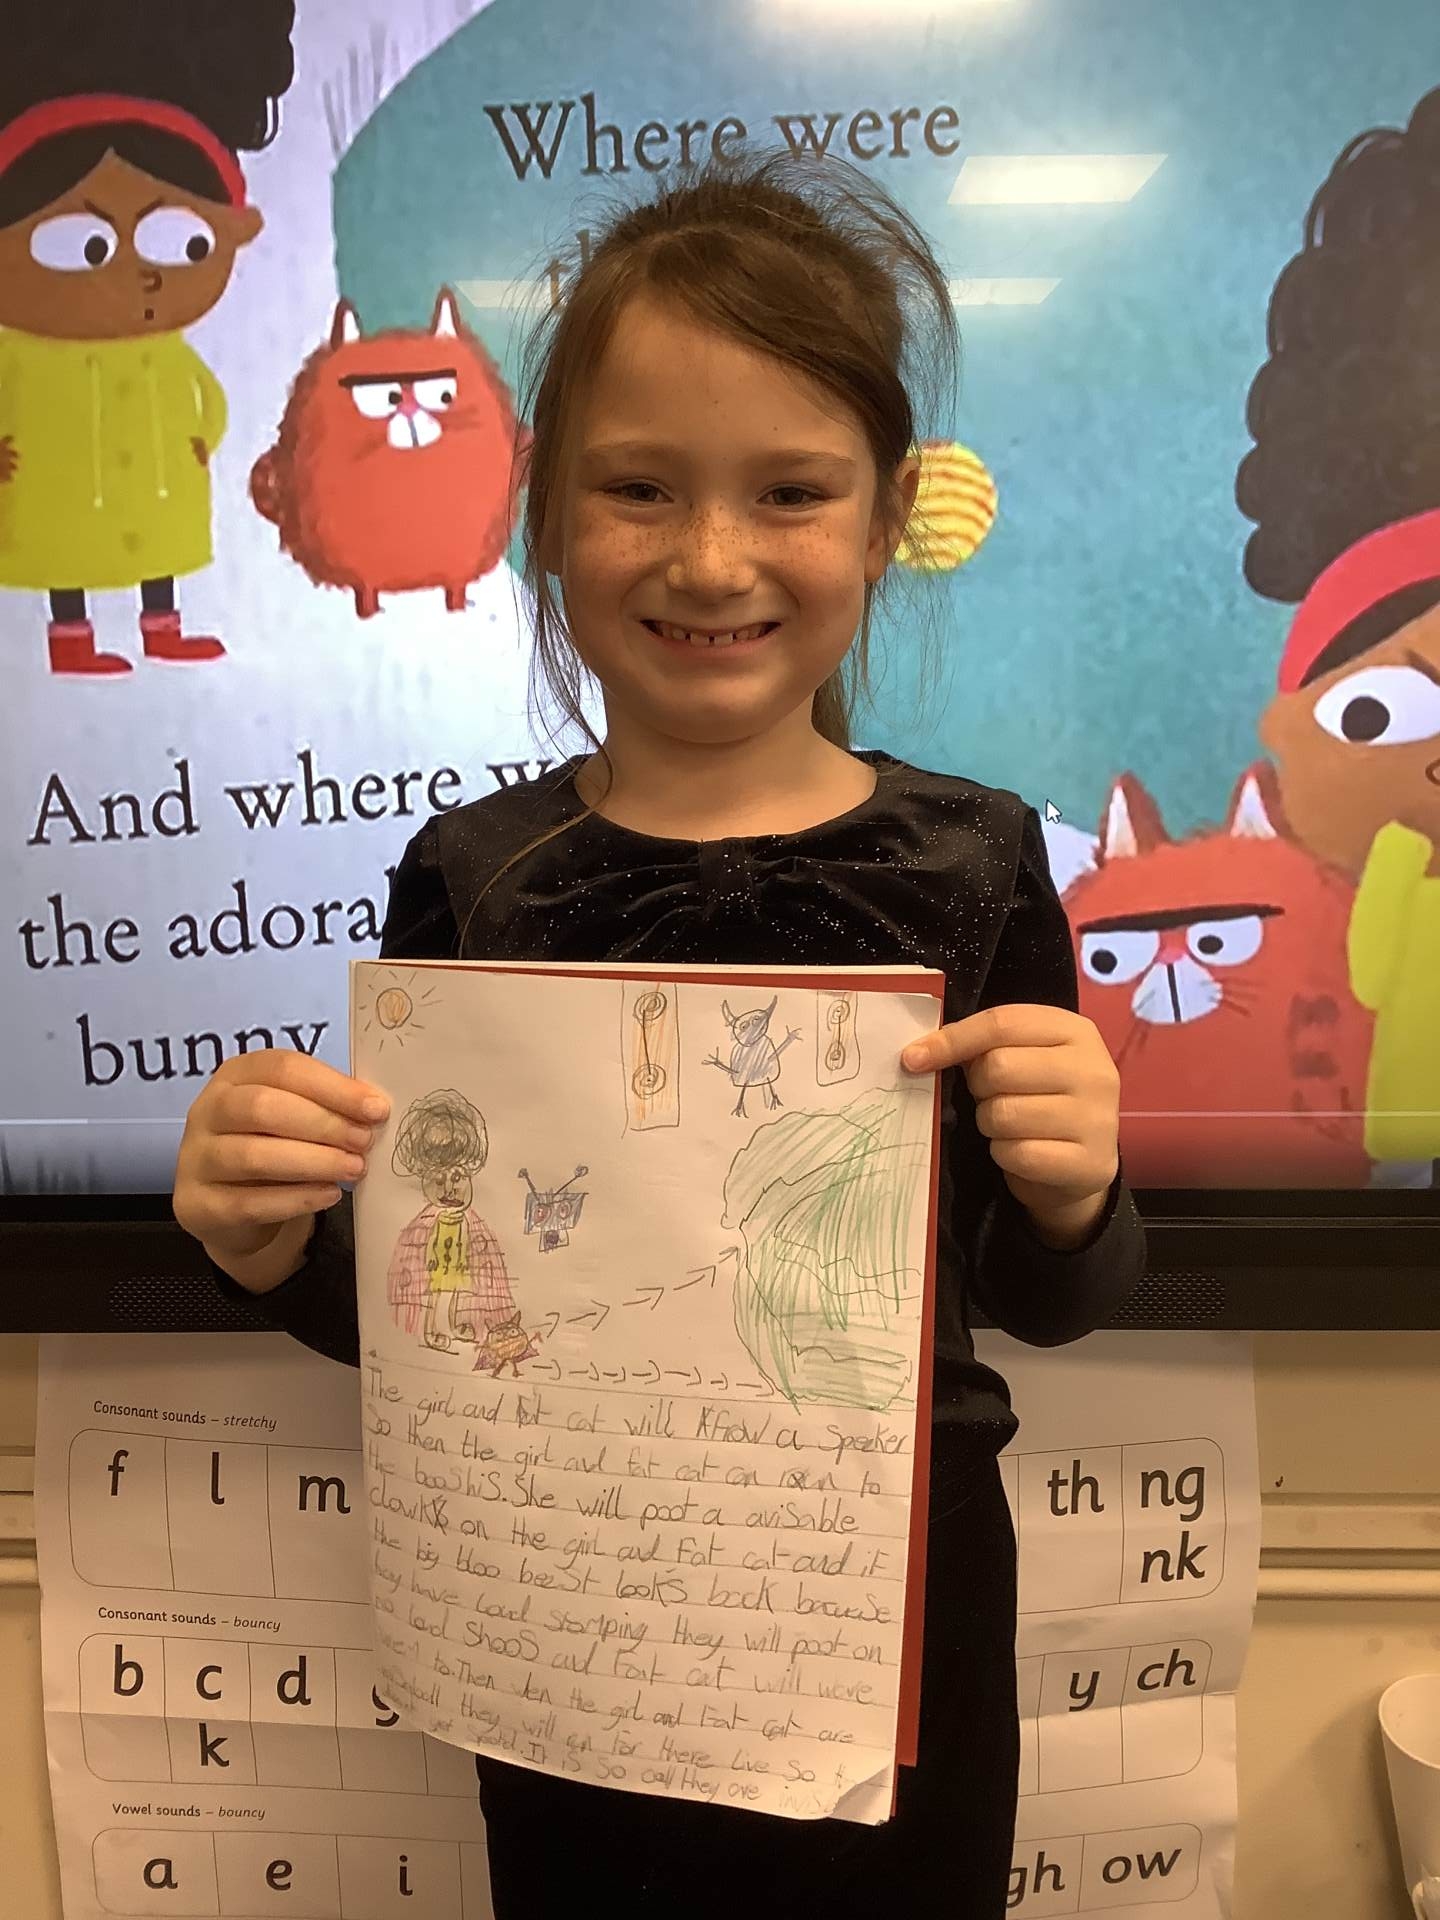 Where were
And where w
the adora
bunny
The girl and Fat cat will Know a Speeker
So then the girl and fat cat can run to
the booshis. She will poot a avisable
clowk on the girl and Fat cat and if
the big bloo beest looks back becuese
they have loud stomping they will poot on
no loud shoos and Fat cat will wore
them to. Then wen the girl and Fat cat are
they will run for there live so
get spoted. It is so call they are
Consonant sounds – stretchy
f l m th ng
nk
Consonant sounds – bouncy
b c d g y ch
k
Vowel sounds – bouncy
a e i gh ow